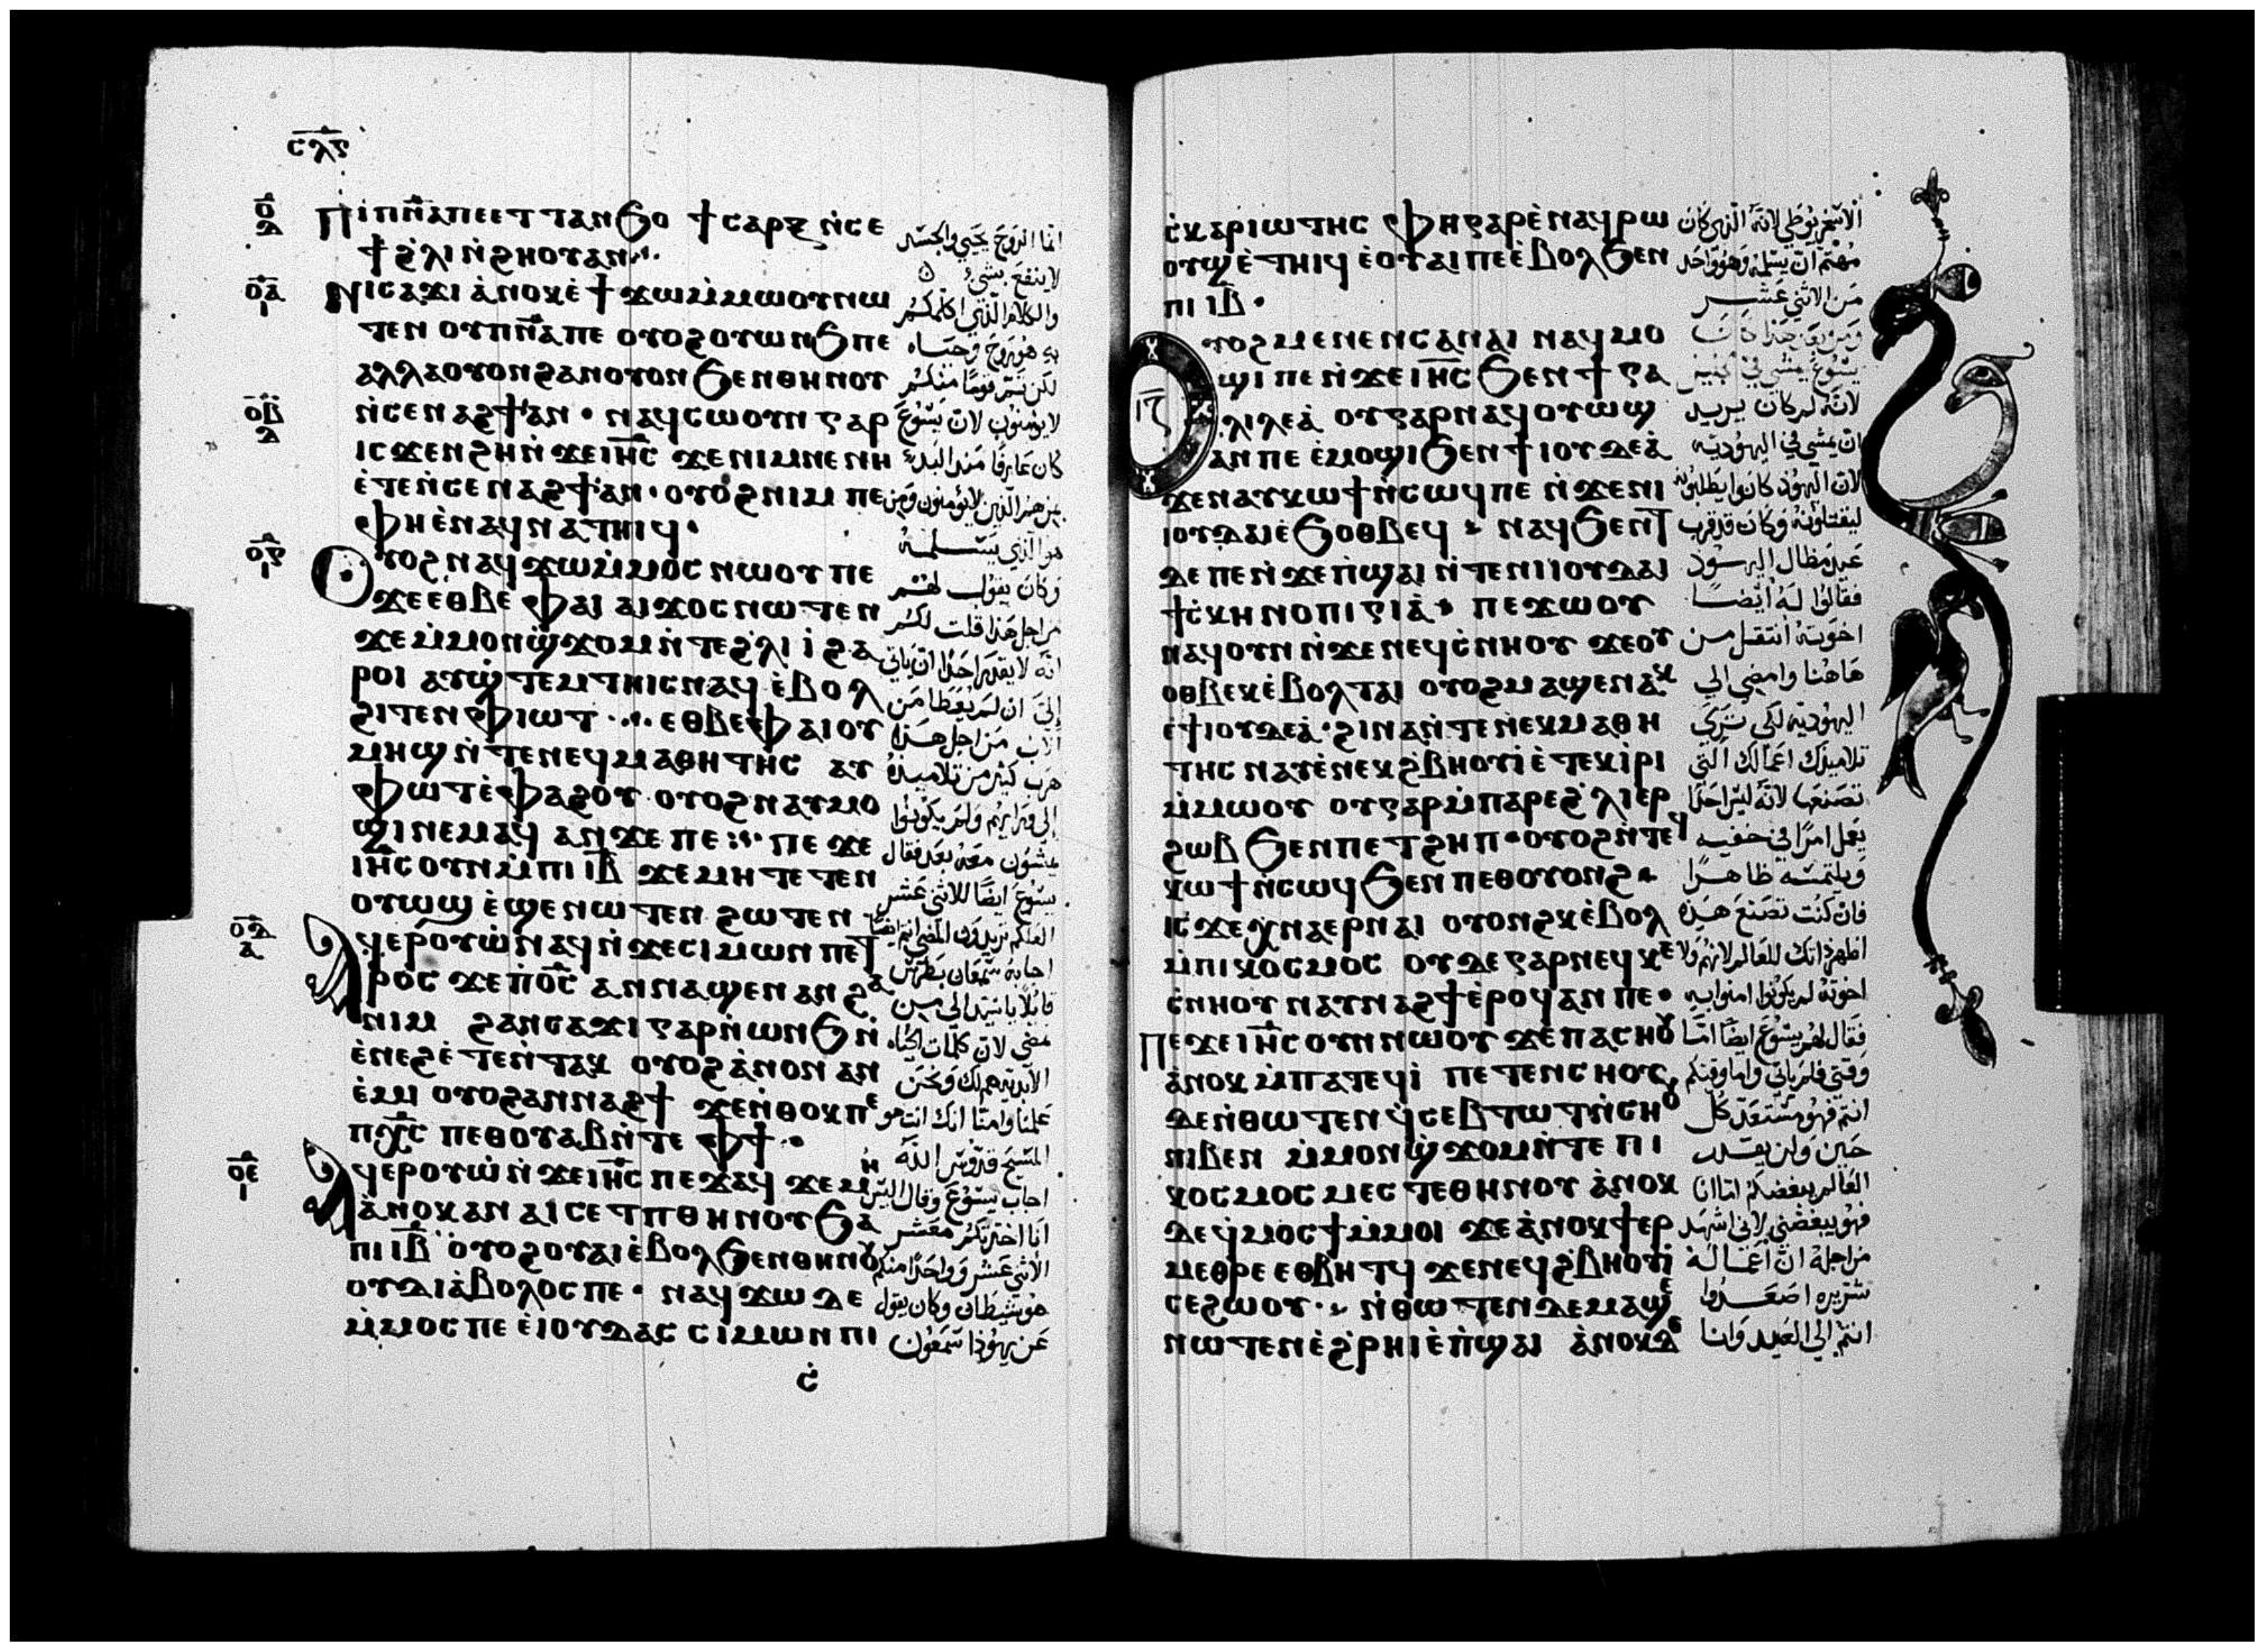 ⲥⲗⲋ
ⲟ
ⲇ
Ⲡⲓⲡⲛⲁⲡⲉⲉⲧⲧⲁⲛϧⲟ ϯⲥⲁⲣⲝ ⲛ̀ⲥⲉ
ϯϩ̀ⲗⲓ ⲛ̀ϩⲏⲟⲩⲁⲛ
ⲟⲁ
ⲓ
Ⲛⲓⲥⲁϫⲓ ⲁ̀ⲛⲟⲕⲉ̀ϯϫⲱⲙ̀ⲙⲱⲟⲩⲛⲱ
ⲧⲉⲛ ⲟⲩⲡⲛⲁⲡⲉ ⲟⲩⲟϩⲟⲩⲱⲛϧⲡⲉ
ⲁⲗⲗⲁⲟⲩⲟⲛϩⲁⲛⲟⲩⲟⲛ ϧⲉⲛⲑⲏⲛⲟⲩ
ⲟⲃ
ⲇ
ⲛ̀ⲥⲉⲛⲁϩϯⲁⲛ · ⲛⲁϥⲥⲱⲟⲩⲛ ⲅⲁⲣ
ⲓⲥϫⲉⲛϩⲏⲛ̀ϫⲉⲓⲏⲥ ϫⲉⲛⲓⲙⲛⲉⲛⲏ
ⲉ̀ⲧⲉⲛ̀ⲥⲉⲛⲁϩϯⲁⲛ · ⲟⲩⲟϩⲛⲓⲙ ⲡⲉ
ⲫⲏⲉ̀ⲛⲁϥⲛⲁⲧⲏⲓϥ ·
ⲟⲅ
ⲓ
Ⲟⲩⲟϩⲛⲁϥϫⲱⲙ̀ⲙⲟⲥⲛⲱⲟⲩ ⲡⲉ
ϫⲉⲉⲑⲃⲉ ⲫⲁⲓ ⲁⲓϫⲟⲥⲛⲱⲧⲉⲛ
ϫⲉⲙ̀ⲙⲟⲛϣ̀ϫⲟⲙⲛ̀ⲧⲉϩ̀ⲗⲓ ⲓ̀ϩⲁ
ⲣⲟⲓ ⲁⲩϣ̀ⲧⲉⲙⲧⲏⲓⲥⲛⲁϥ ⲉ̀ⲃⲟⲗ
ϩⲓⲧⲉⲛⲫⲓⲱⲧ ⲉⲑⲃⲉⲫⲁⲓⲟⲩ
ⲙⲏϣ ⲛ̀ⲧⲉⲛⲉϥⲙⲁⲑⲏⲧⲏⲥ ⲁⲩ
ⲫⲱⲧⲉ̀ⲫⲁϩⲟⲩ ⲟⲩⲟϩⲛⲁⲩⲙⲟ
ϣⲓⲛⲉⲙⲁϥ ⲁⲛϫⲉ ⲡⲉ ⲡⲉ ϫⲉ
ⲓⲏⲥⲟⲩⲛⲙ̀ⲡⲓ ⲓⲃ ϫⲉⲙⲏ ⲧⲉⲧⲉⲛ
ⲟⲩⲱϣ ⲉ̀ϣⲉⲛⲱⲧⲉⲛ ϩⲱⲧⲉⲛ
ⲟⲇ
ⲁ
Ⲁϥⲉⲣⲟⲩⲱ̀ⲛⲁϥⲛ̀ϫⲉⲥⲓⲙⲱⲛ ⲡⲉⲧ
ⲣⲟⲥ ϫⲉⲡ̀ⲟ̅ⲥ̅ ⲁⲛⲛⲁϣⲉⲛⲁⲛ ϩⲁ
ⲛⲓⲙ ϩⲁⲛⲥⲁϫⲓ ⲅⲁⲣⲛ̀ⲱⲛϧⲛ̀
ⲉ̀ⲛⲉϩⲉ̀ⲧⲉⲛ̀ⲧⲁⲕ ⲟⲩⲟϩⲁ̀ⲛⲟⲛ ⲁⲛ
ⲉ̀ⲙⲓ ⲟⲩⲟϩⲁⲛⲛⲁϩϯ ϫⲉⲛ̀ⲑⲟⲕⲡⲉ
ⲡⲭ̅ⲥ̅ ⲡⲉⲑⲟⲩⲁⲃⲛ̀ⲧⲉ ⲫϯ ·
ⲟⲉ
ⲓ
Ⲁϥⲉⲣⲟⲩⲱ̀ ⲛ̀ϫⲉⲓⲏⲥ ⲡⲉϫⲁϥ ϫⲉⲙⲏ
ⲁ̀ⲛⲟⲕⲁⲛ ⲁⲓⲥⲉⲧⲡⲑⲏⲛⲟⲩ ϧⲁ
ⲡⲓ ⲓⲃ ⲟⲩⲟϩⲟⲩⲁⲓⲉ̀ⲃⲟⲗϧⲉⲛⲑⲏⲛⲟⲩ
ⲟⲩⲇⲓⲁ̀ⲃⲟⲗⲟⲥⲡⲉ · ⲛⲁϥϫⲱ ⲇⲉ
ⲙ̀ⲙⲟⲥⲡⲉ ⲉ̀ⲓⲟⲩⲇⲁⲥ ⲥⲓⲙⲱⲛ ⲡⲓ
ⲥ̀
انما الروح يحيي والجسد
لا ينفع بشي
والكلام الذي اكلمكم
به هو روح وحياه
لكن ثم قوما منكم
لا يومنون لان يسوع
كان عارفا منذ البدء
من هم الذين لا يؤمنون ومن
هو الذي يسلمه
وكان يقول لهم
من اجل هذا قلت لكم
انه لا يقدر احدا ان ياتي
إلي ان لم يعطا من
الاب من اجل هذا
هرب كثير من تلاميذه
إلى ورايهم ولم يكونوا
يمشون معه بعد فقال
يسوع ايضا للاثني عشر
العلكم تريدون المضي انتم ايضا
اجابه سمعان بطرس
قايلا يا سيد الى من
نمضي لان كلمات الحياه
الابديه هم لك ونحن
علمنا وامنا انك انت هو
المسيح قدوس الله
اجاب يسوع وقال اليس
انا اخترتكم معشر
الاثني عشر وواحدا منكم
هو شيطان وكان يقول
عن يهوذا سمعون
ⲥ̀ⲕⲁⲣⲓⲱⲧⲏⲥ ⲫⲏⲅⲁⲣⲉ̀ⲛⲁϥⲣⲱ
ⲟⲩϣⲉ̀ⲧⲏⲓϥ ⲉ̀ⲟⲩⲁⲓⲡⲉⲉ̀ⲃⲟⲗϧⲉⲛ
ⲡⲓ ⲓⲃ ·
ⲓⲍ
Ⲟⲩⲟϩⲙⲉⲛⲉⲛⲥⲁⲛⲁⲓ ⲛⲁϥⲙⲟ
ϣⲓ ⲡⲉ ⲛ̀ϫⲉⲓⲏⲥ ϧⲉⲛϯⲅⲁ
ⲗⲓⲗⲉⲁ̀ ⲟⲩⲅⲁⲣⲛⲁϥⲟⲩⲱϣ
ⲁⲛⲡⲉ ⲉ̀ⲙⲟϣⲓϧⲉⲛϯⲓⲟⲩⲇⲉⲁ̀
ϫⲉⲛⲁⲩⲕⲱϯⲛ̀ⲥⲱϥⲡⲉ ⲛ̀ϫⲉⲛⲓ
ⲓⲟⲩⲇⲁⲓⲉ̀ϧⲟⲑⲃⲉϥ ⲛⲁϥϧⲉⲛⲧ
ⲇⲉ ⲡⲉⲛ̀ϫⲉⲡ̀ϣⲁⲓ ⲛ̀ⲧⲉⲛⲓⲓⲟⲩⲇⲁⲓ
ϯⲥ̀ⲕⲏⲛⲟⲡⲓⲅⲓⲁ̀ ⲡⲉϫⲱⲟⲩ
ⲛⲁϥⲟⲩⲛ ⲛ̀ϫⲉⲛⲉϥⲥ̀ⲛⲏⲟⲩ ϫⲉⲟⲩ
ⲟⲑⲃⲉⲕⲉ̀ⲃⲟⲗⲧⲁⲓ ⲟⲩⲟϩⲙⲁϣⲉⲛⲁⲕ
ⲉϯⲓⲟⲩⲇⲉⲁ̀ · ϩⲓⲛⲁⲛ̀ⲧⲉⲛⲉⲕⲙⲁⲑⲏ
ⲧⲏⲥ ⲛⲁⲩⲉ̀ⲛⲉⲕϩ̀ⲃⲏⲟⲩⲓ̀ⲉ̀ⲧⲉⲕⲓ̀ⲣⲓ
ⲙ̀ⲙⲱⲟⲩ ⲟⲩⲅⲁⲣⲙ̀ⲡⲁⲣⲉϩ̀ⲗⲓⲉⲣ
ϩⲱⲃ ϧⲉⲛⲡⲉⲧϩⲏⲡ · ⲟⲩⲟϩⲛ̀ⲧⲉϥ
ⲕⲱϯⲛ̀ⲥⲱϥ ϧⲉⲛ ⲡⲉⲑⲟⲩⲟⲛϩ
ⲓⲥϫⲉⲭ̀ⲛⲁⲉⲣⲛⲁⲓ ⲟⲩⲟⲛϩⲕⲉ̀ⲃⲟⲗ
ⲙ̀ⲡⲓⲕⲟⲥⲙⲟⲥ ⲟⲩⲇⲉⲅⲁⲣⲛⲉϥⲕⲉ
ⲥ̀ⲛⲏⲟⲩ ⲛⲁⲩⲛⲁϩϯⲉ̀ⲣⲟϥⲁⲛ ⲡⲉ ·
Ⲡⲉϫⲉⲓⲏⲥⲟⲩⲛⲛⲱⲟⲩ ϫⲉⲡⲁⲥⲏⲟⲩ
ⲁ̀ⲛⲟⲕ ⲙ̀ⲡⲁⲧⲉϥⲓ̀ ⲡⲉⲧⲉⲛⲥⲏⲟⲩ
ⲇⲉⲛ̀ⲑⲱⲧⲉⲛ ϥ̀ⲥⲉⲃⲧⲱⲧⲛ̀ⲥⲏⲟⲩ
ⲛⲓⲃⲉⲛ ⲙ̀ⲙⲟⲛϣ̀ϫⲟⲙⲛ̀ⲧⲉ ⲡⲓ
ⲕⲟⲥⲙⲟⲥ ⲙⲉⲥⲧⲉⲑⲏⲛⲟⲩ ⲁ̀ⲛⲟⲕ
ⲇⲉϥ̀ⲙⲟⲥϯⲙ̀ⲙⲟⲓ ϫⲉⲁ̀ⲛⲟⲕϯⲉⲣ
ⲙⲉⲑⲣⲉ ⲉⲑⲃⲏⲧϥ ϫⲉⲛⲉϥϩ̀ⲃⲏⲟⲩⲓ̀
ⲥⲉϩⲱⲟⲩ · ⲛ̀ⲑⲱⲧⲉⲛⲇⲉⲙⲁϣⲉ
ⲛⲱⲧⲉⲛⲉ̀ϩ̀ⲣⲏⲓⲉ̀ⲡ̀ϣⲁⲓ ⲁ̀ⲛⲟⲕⲇⲉ
الاسخريوطي لانه الذي كان
مهتم ان يسلمه وهو واحد
من الاثني عشر
ومن بعد هذا كان
يسوع يمشي في
لانه لم كان يريد
ان يمشي في اليهوديه
لان اليهود كانوا يطلبونه
ليقتلونه وكان قد قرب
عيد مظال اليهود
فقالوا له ايضا
اخوته انتقل من
هاهنا وامضي الي
اليهوديه لكي تري
تلاميذك اعمالك التي
تصنعها لانه ليس احدا
يعمل امرا في خفيه
ويلتمسه ظاهرا
فان كنت تصنع هذه
اظهر ذاتك للعالم لانهم ولا
اخوته لم يكونوا امنوا به
فقال لهم يسوع ايضا اما
وقتي فلم ياتي واما وقتكم
انتم فهو مستعد كل
حين ولن يقدر
العالم يبغضكم اما انا
فهو يبغضني لاني اشهد
من اجله ان اعماله
شريره اصعدوا
انتم الي العيد وانا